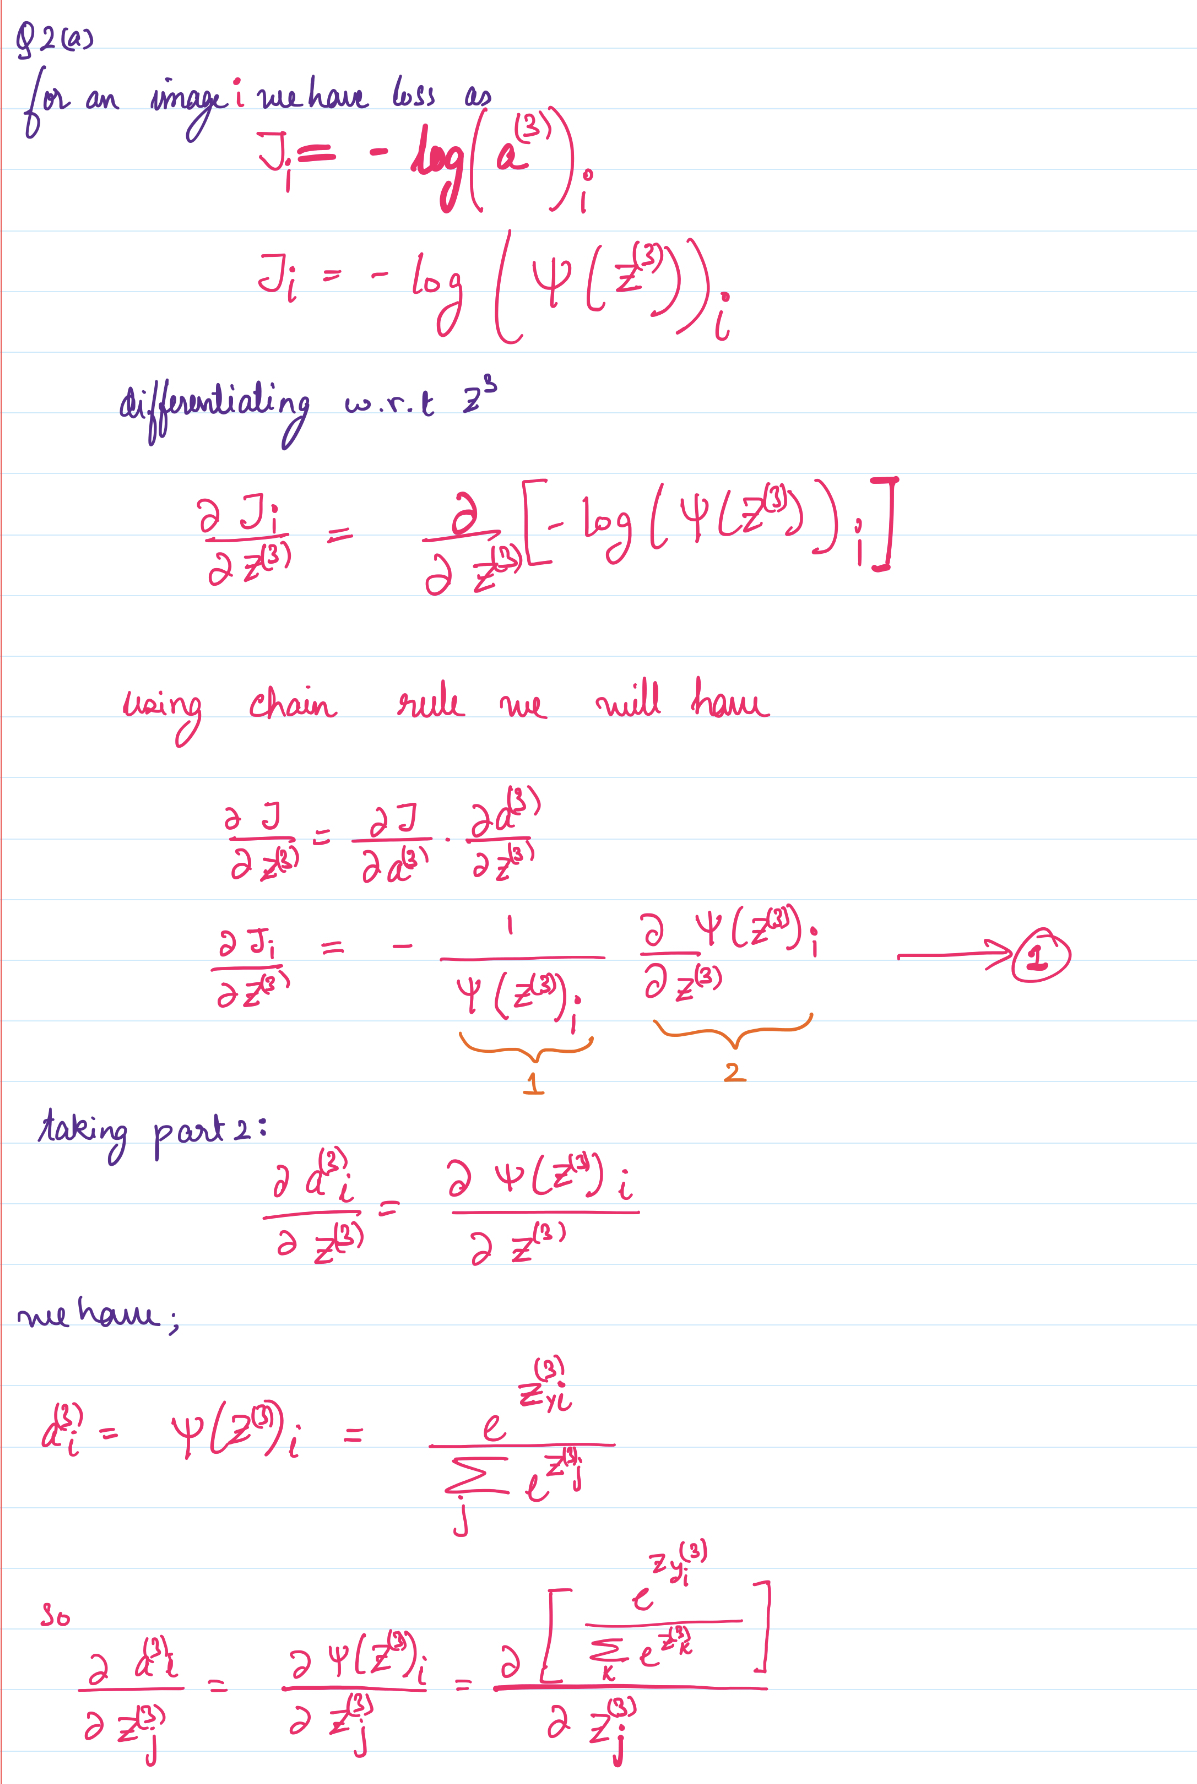 Q2(a)
for an image i we have loss as
J_i = - log(a^(3))_i
J_i = - log(Ψ(z^(3)))_i
differentiating w.r.t z^3
∂J_i/∂z^(3) = ∂/∂z^(3) [- log(Ψ(z^(3)))_i]
using chain rule we will have
∂J/∂z^(3) = ∂J/∂a^(3) . ∂a^(3)/∂z^(3)
∂J_i/∂z^(3) = - 1/Ψ(z^(3))_i ∂Ψ(z^(3))_i/∂z^(3) → ①
1 2
taking part 2:
∂a^(3)_i/∂z^(3) = ∂Ψ(z^(3))_i/∂z^(3)
we have;
a^(3)_i = Ψ(z^(3))_i = e^(z^(3)_yi) / Σ_j e^(z^(3)_j)
so ∂a^(3)_i/∂z^(3)_j = ∂Ψ(z^(3))_i/∂z^(3)_j = ∂[e^(z_y_i^(3)) / Σ_k e^(z^(3)_k)] / ∂z^(3)_j